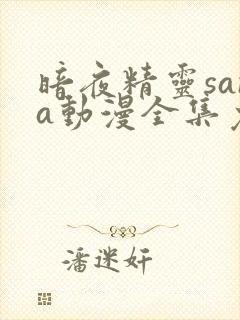 暗夜精靈sa
a動漫全集
潘迷奸